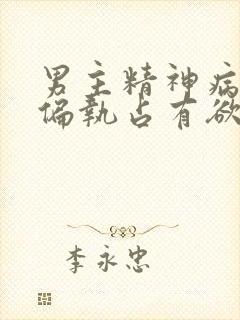 男主精神病
偏执占有欲
李永忠